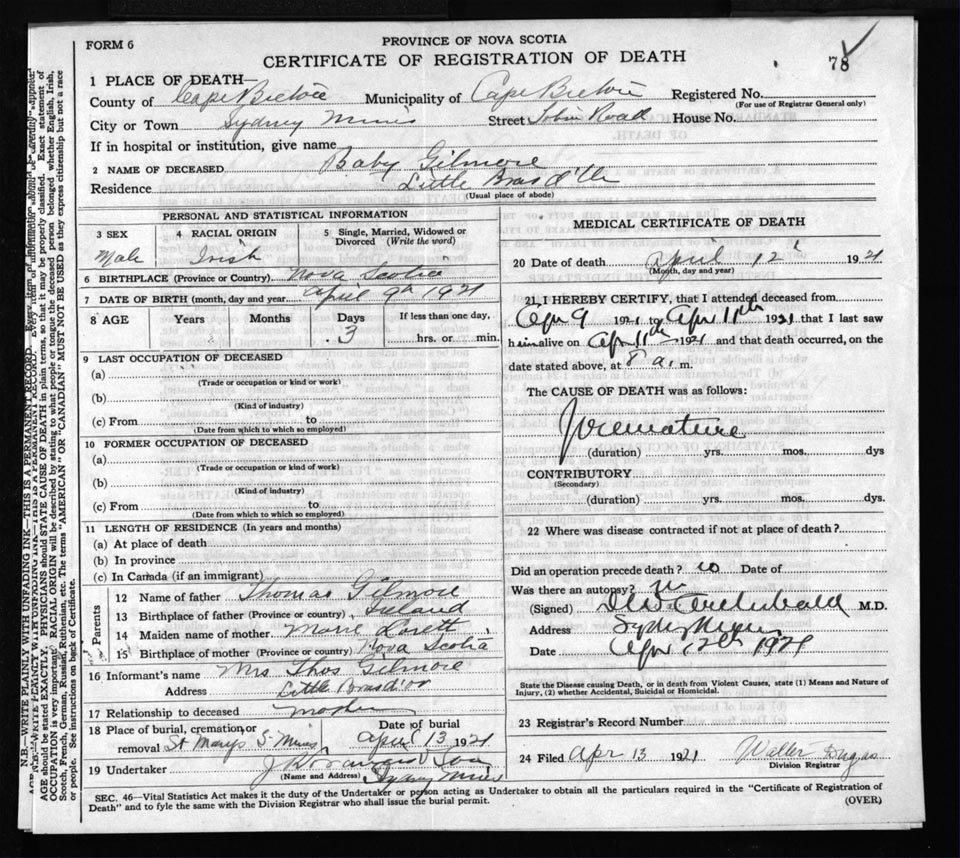 FORM 6
PROVINCE OF NOVA SCOTIA
CERTIFICATE OF REGISTRATION OF DEATH
78
1 PLACE OF DEATH—
County of Cape Breton Municipality of Cape Breton Registered No.
(For use of Registrar General only)
City or Town Sydney Mines Street Tobin Road House No.
If in hospital or institution, give name
2 NAME OF DECEASED Baby Gilmore
Residence Little Bras d'Or
(Usual place of abode)
PERSONAL AND STATISTICAL INFORMATION
3 SEX 4 RACIAL ORIGIN 5 Single, Married, Widowed or Divorced (Write the word)
Male Irish
6 BIRTHPLACE (Province or Country) Nova Scotia
7 DATE OF BIRTH (month, day and year) April 9th 1921
8 AGE Years Months Days If less than one day,
3 hrs. or min.
9 LAST OCCUPATION OF DECEASED
(a)
(Trade or occupation or kind or work)
(b)
(Kind of industry)
(c) From to
(Date from which to which so employed)
10 FORMER OCCUPATION OF DECEASED
(a)
(Trade or occupation or kind or work)
(b)
(Kind of industry)
(c) From to
(Date from which to which so employed)
11 LENGTH OF RESIDENCE (In years and months)
(a) At place of death
(b) In province
(c) In Canada (if an immigrant)
Parents
12 Name of father Thomas Gilmore
13 Birthplace of father (Province or country) Ireland
14 Maiden name of mother Marie
15 Birthplace of mother (Province or country) Nova Scotia
16 Informant's name Mrs Thos Gilmore
Address Little Bras d'or
17 Relationship to deceased mother
18 Place of burial, cremation or removal St Marys S. Mines Date of burial April 13 1921
19 Undertaker Son
(Name and Address) Sydney Mines
MEDICAL CERTIFICATE OF DEATH
20 Date of death April 12 1921
(Month, day and year)
21 I HEREBY CERTIFY, that I attended deceased from
Apr 9 1921 to Apr 11th 1921 that I last saw
him alive on Apr 11th 1921 and that death occurred, on the
date stated above, at 8 a. m.
The CAUSE OF DEATH was as follows:
Premature
(duration) yrs. mos. dys
CONTRIBUTORY
(Secondary)
(duration) yrs. mos. dys.
22 Where was disease contracted if not at place of death?
Did an operation precede death? no Date of
Was there an autopsy? no
(Signed) Archibald M.D.
Address Sydney Mines
Date Apr 12th 1921
State the Disease causing Death, or in death from Violent Causes, state (1) Means and Nature of Injury, (2) whether Accidental, Suicidal or Homicidal.
23 Registrar's Record Number
24 Filed Apr 13 1921 Walter Dugas
Division Registrar
SEC. 46—Vital Statistics Act makes it the duty of the Undertaker or person acting as Undertaker to obtain all the particulars required in the "Certificate of Registration of
Death" and to fyle the same with the Division Registrar who shall issue the burial permit.
(OVER)
N.B.—WRITE PLAINLY WITH UNFADING INK—THIS IS A PERMANENT RECORD.
AGE should be stated EXACTLY. PHYSICIANS should STATE CAUSE OF DEATH in plain terms, so that it may be properly classified. Exact statement of
OCCUPATION is very important. RACIAL ORIGIN will be described by stating to what people or tongue the deceased person belonged whether English, Irish,
Scotch, French, German, Russian, Ruthenian, etc. The terms "AMERICAN" OR "CANADIAN" MUST NOT BE USED as they express citizenship but not a race
or people. See instructions on back of Certificate.